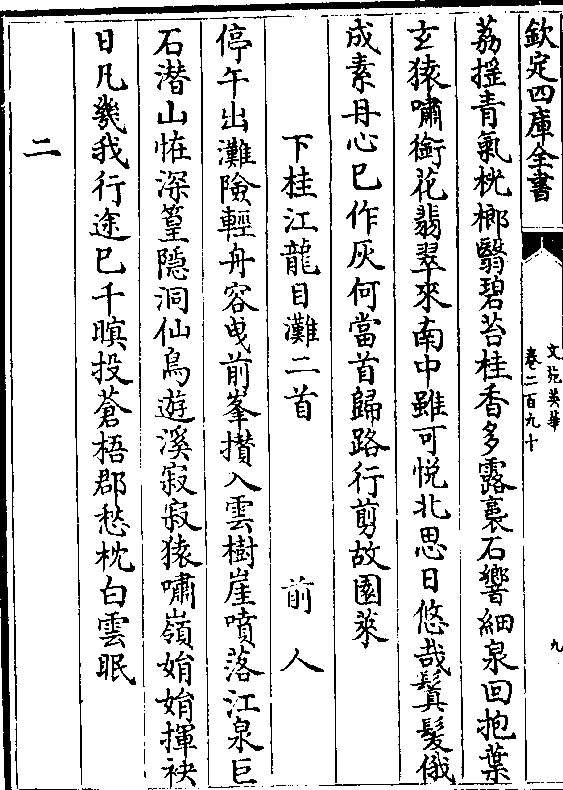 欽定四庫全書
文苑英華
卷二百九十
九
荔揺青氣桄榔翳碧苔桂香多露裛石響細泉回抱葉
玄猿嘯銜花翡翠來南中雖可悦北思日悠哉鬒髮俄
成素丹心已作灰何當首歸路行剪故園萊
下桂江龍目灘二首　前人
停午出灘險輕舟容曳前峯攅入雲樹崖噴落江泉巨
石潜山怪深篁隠洞仙鳥遊溪寂寂猿嘯嶺娋娋揮袂
日凡幾我行途已千暝投蒼梧郡愁枕白雲眠
二